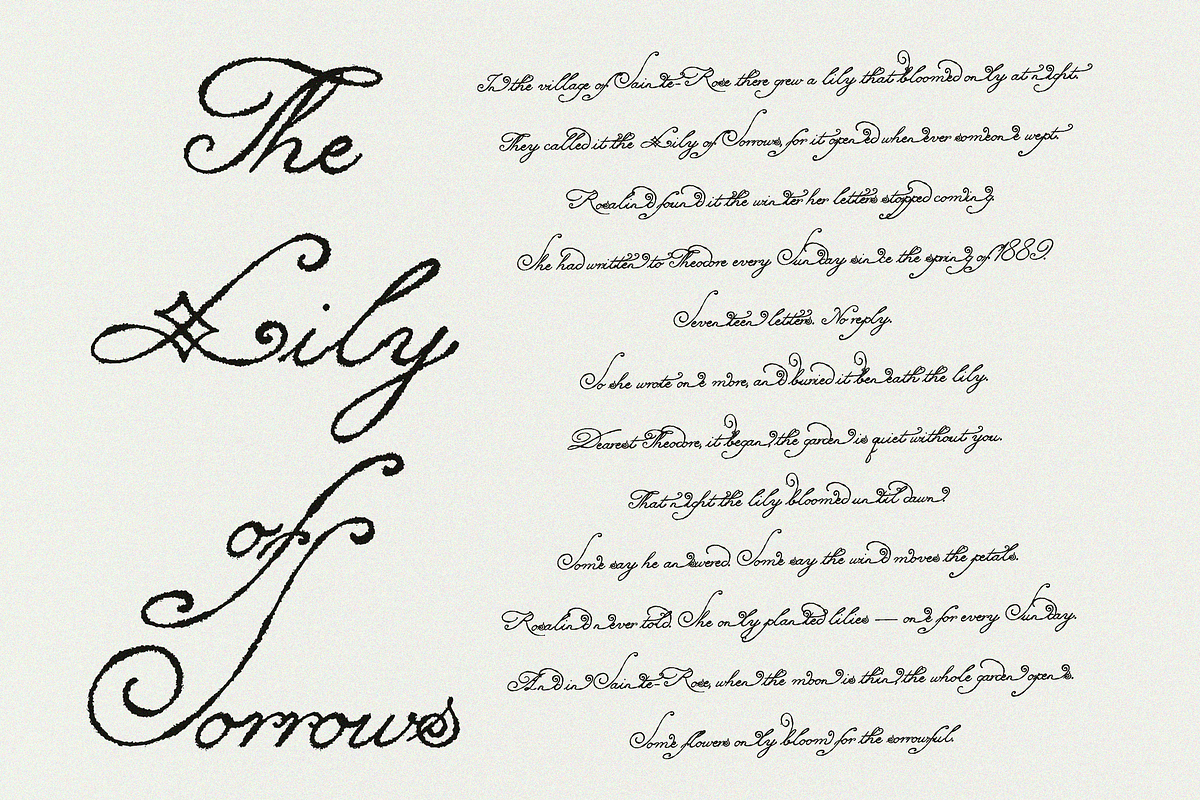 The
Lily
of
Sorrows
In the village of Sainte-Rose there grew a lily that bloomed only at night.
They called it the Lily of Sorrows, for it opened whenever someone wept.
Rosalind found it the winter her letters stopped coming.
She had written to Theodore every Sunday since the spring of 1889.
Seventeen letters. No reply.
So she wrote one more, and buried it beneath the lily.
Dearest Theodore, it began, the garden is quiet without you.
That night the lily bloomed until dawn.
Some say he answered. Some say the wind moves the petals.
Rosalind never told. She only planted lilies — one for every Sunday.
And in Sainte-Rose, when the moon is thin, the whole garden opens.
Some flowers only bloom for the sorrowful.